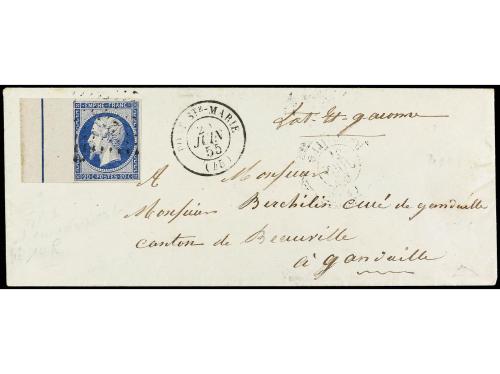 EMPIRE FRANC
20 C POSTES 20 C
STE-MARIE
JUIN
55
Lot et garonne
A Monsieur
Monsieur Berchilin curé de gandaille
canton de Beauville
à gandaille